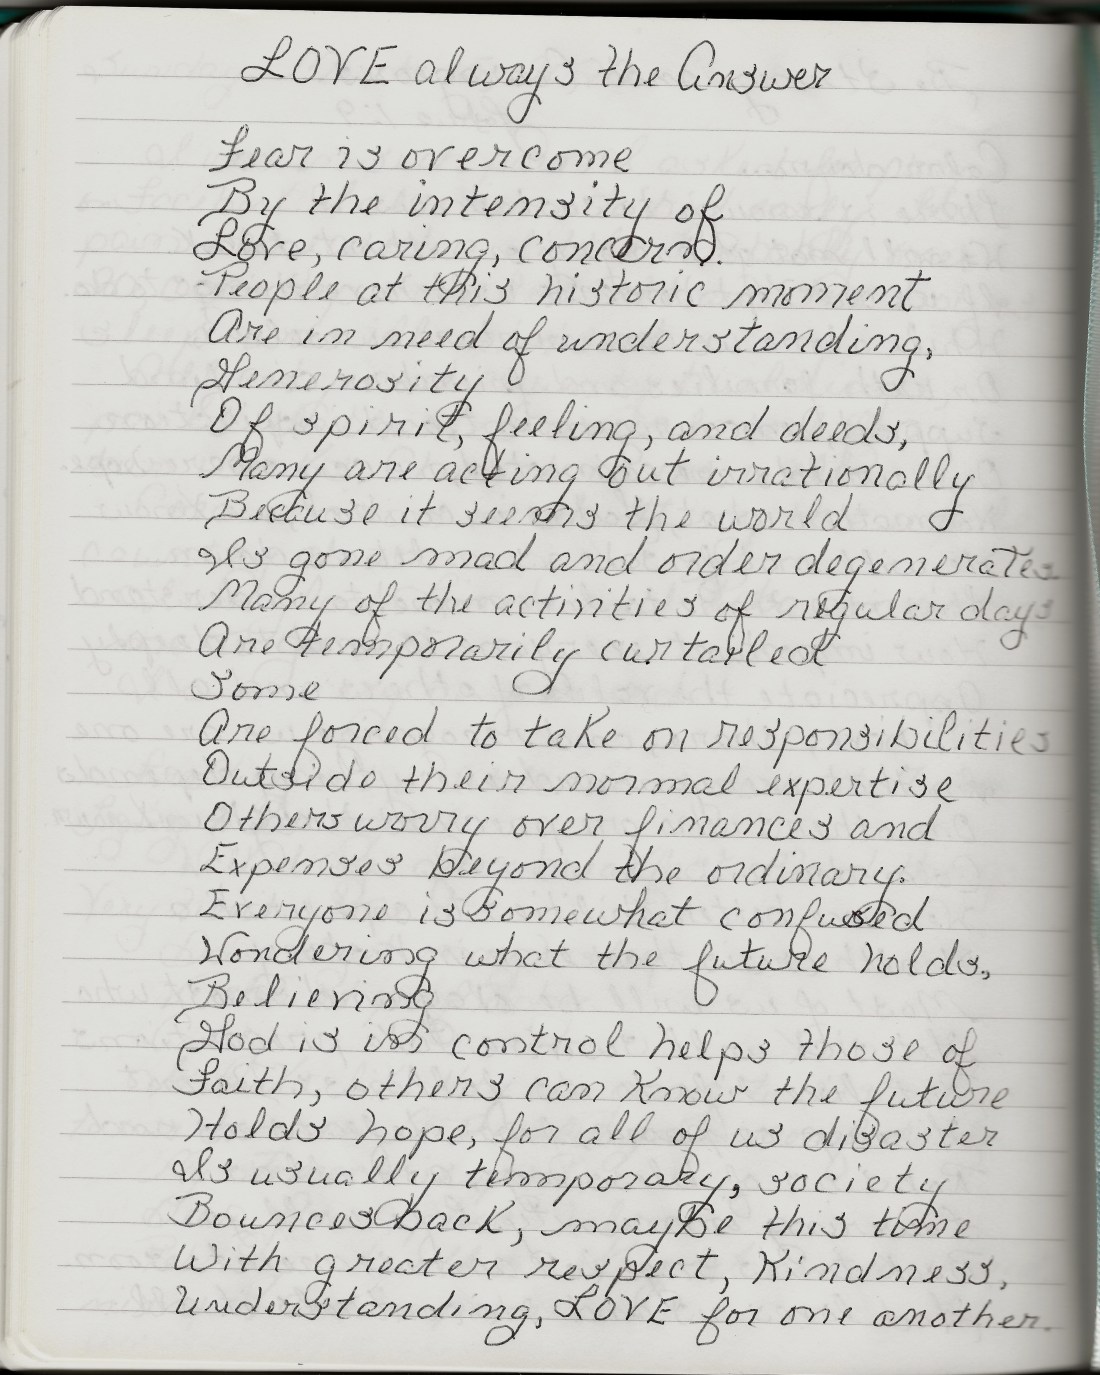 LOVE always the Answer
Fear is overcome
By the intensity of
Love, caring, concern.
People at this historic moment
Are in need of understanding,
Generosity
Of spirit, feeling, and deeds,
Many are acting out irrationally
Because it seems the world
Is gone mad and order degenerates
Many of the activities of regular days
Are temporarily curtailed
Some
Are forced to take on responsibilities
Outside their normal expertise
Others worry over finances and
Expenses beyond the ordinary.
Everyone is somewhat confused
Wondering what the future holds,
Believing
God is in control helps those of
Faith, others can know the future
Holds hope, for all of us disaster
Is usually temporary, society
Bounces back, maybe this time
With greater respect, kindness,
Understanding, LOVE for one another.